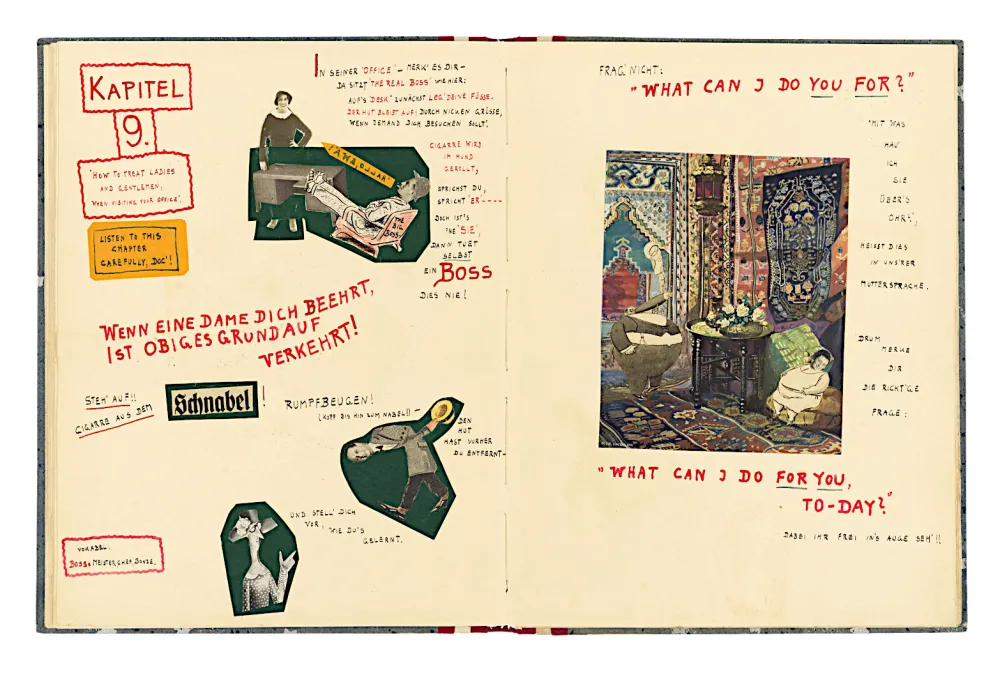 KAPITEL
9.
"HOW TO TREAT LADIES
AND GENTLEMEN,
WHEN VISITING YOUR OFFICE".
LISTEN TO THIS
CHAPTER
CAREFULLY, DOC'!
IN SEINER "OFFICE" – MERK' ES DIR –
DA SITZT "THE REAL BOSS" WIE HIER:
AUF'S "DESK" ZUNÄCHST LEG' DEINE FÜSSE.
DER HUT BLEIBT AUF! DURCH NICKEN GRÜSSE,
WENN JEMAND DICH BESUCHEN SOLLT'.
CIGARRE WIRD
IM MUND
GEROLLT,
SPRICHST DU,
SPRICHT "ER" ----
DOCH IST'S
'NE "SIE",
DANN TUET
SELBST
EIN BOSS
DIES NIE!
THE
BIG
BOSS
WENN EINE DAME DICH BEEHRT,
IST OBIGES GRUNDAUF
VERKEHRT!
STEH' AUF!!
CIGARRE AUS DEM
Schnabel!
RUMPFBEUGEN!
(KOPF BIS HIN ZUM NABEL!) –
DEN
HUT
HAST VORHER
DU ENTFERNT –
UND STELL' DICH
VOR,
WIE DU'S
GELERNT.
VOKABEL:
BOSS = MEISTER, CHEF, BONZE.
FRAG' NICHT:
"WHAT CAN I DO YOU FOR?"
"MIT WAS
HAU'
ICH
SIE
ÜBER'S
OHR?",
HEISST DIES
IN UNS'RER
MUTTERSPRACHE.
DRUM
MERKE
DIR
DIE RICHT'GE
FRAGE:
"WHAT CAN I DO FOR YOU,
TO-DAY?"
DABEI IHR FREI IN'S AUGE SEH'!!